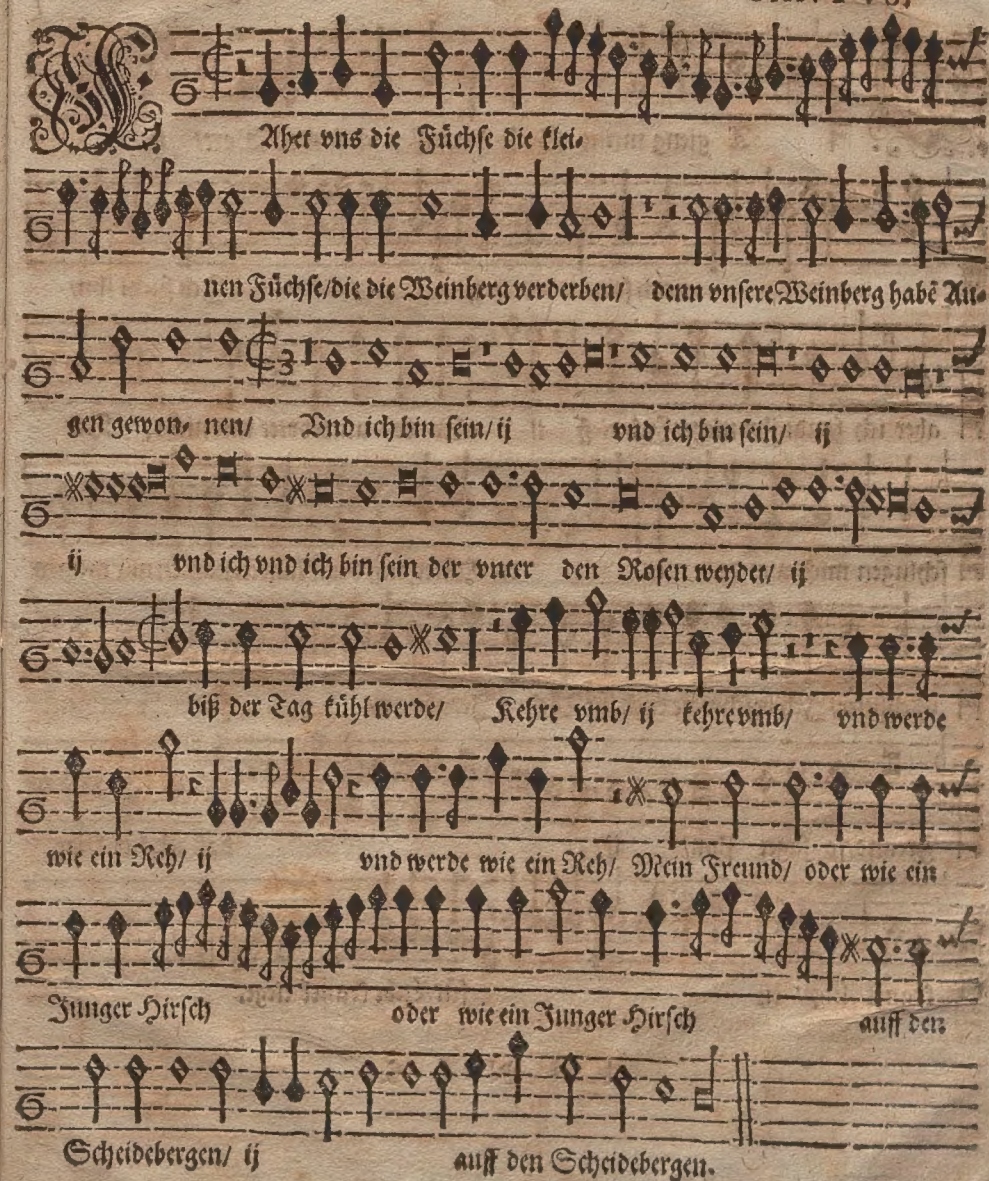 FAhet vns die Füchse die klei-
nen Füchse/die die Weinberg verderben/ denn vnsere Weinberg habē Au-
gen gewon- nen/ Vnd ich bin sein/ ij vnd ich bin sein/ ij
ij vnd ich vnd ich bin sein der vnter den Rosen weydet/ ij
biß der Tag kühl werde/ Kehre vmb/ ij kehre vmb/ vnd werde
wie ein Reh/ ij vnd werde wie ein Reh/ Mein Freund/ oder wie ein
Junger Hirsch oder wie ein Junger Hirsch auff den
Scheidebergen/ ij auff den Scheidebergen.